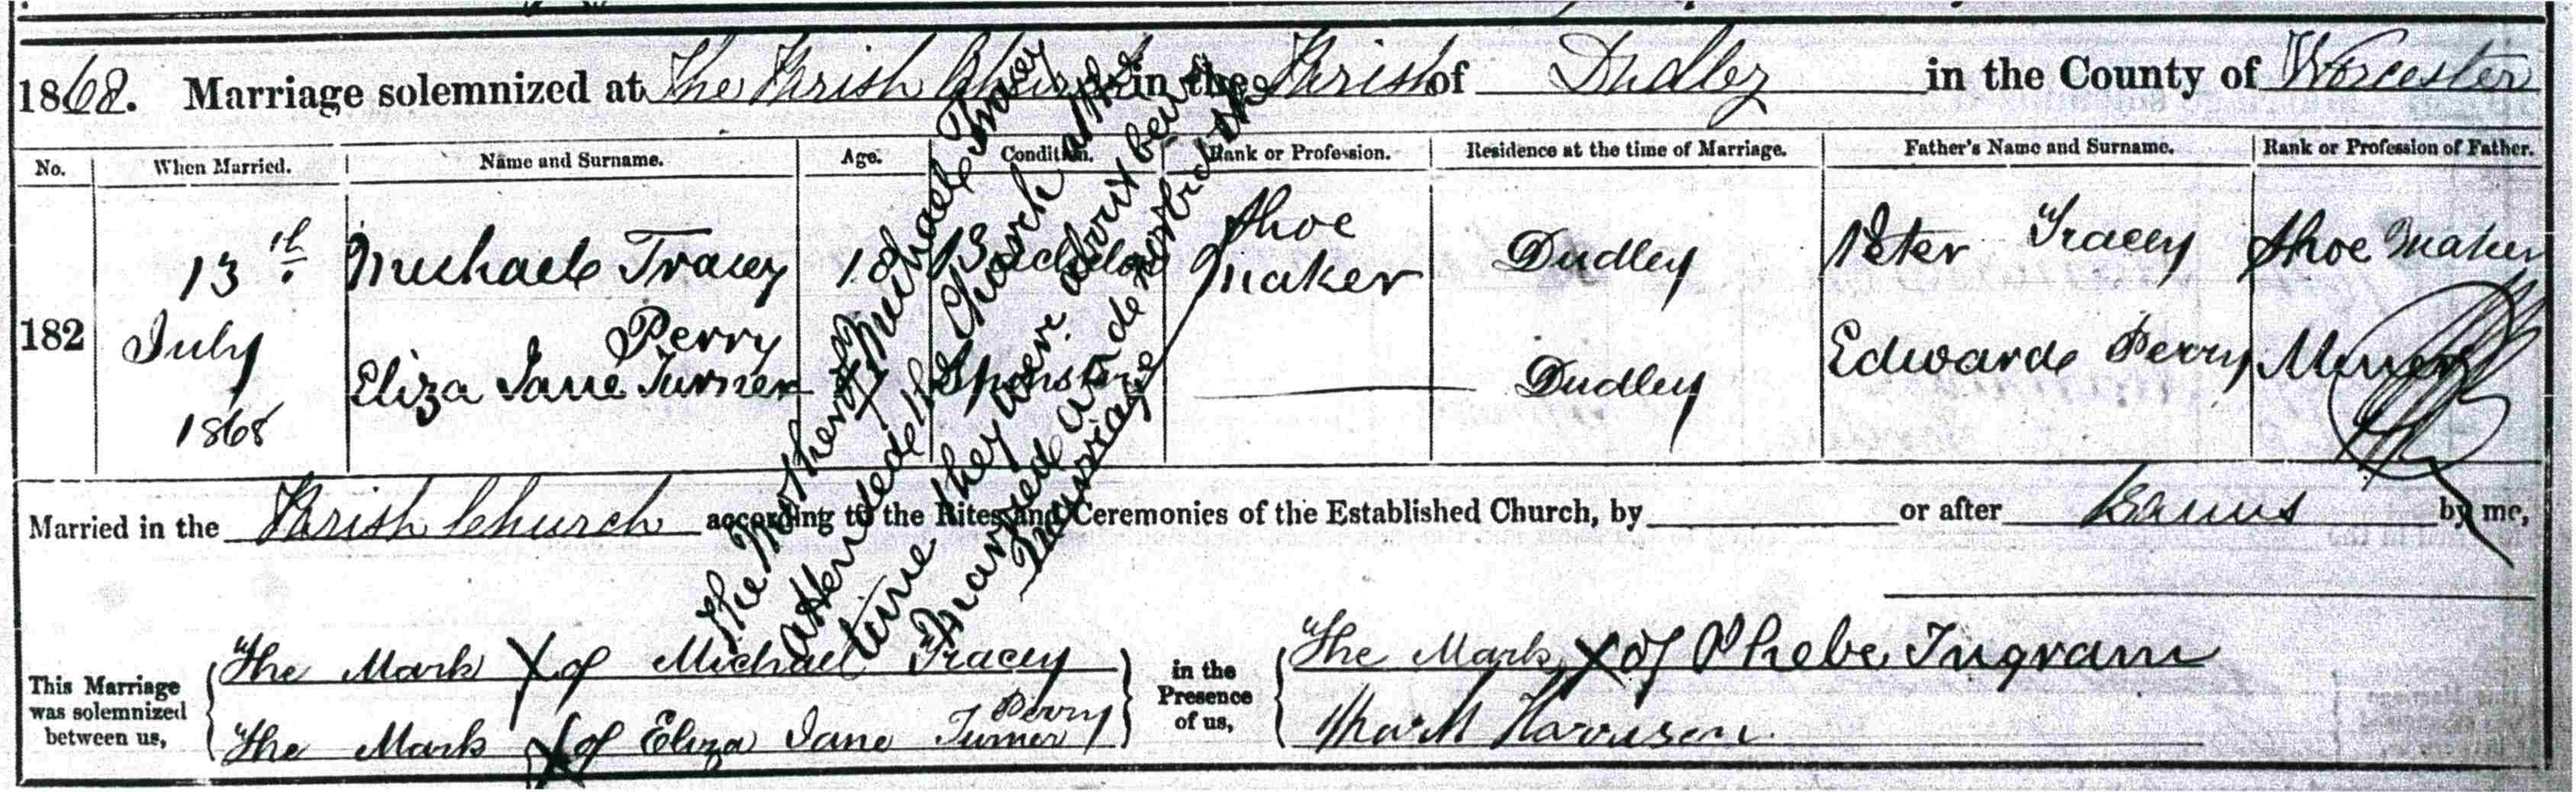 1868. Marriage solemnized at The Parish Church in the Parish of Dudley in the County of Worcester
No. When Married. Name and Surname. Age. Condition. Rank or Profession. Residence at the time of Marriage. Father's Name and Surname. Rank or Profession of Father.
182
13th July 1868
Michael Tracey 18 Bachelor Shoe Maker Dudley Peter Tracey Shoe Maker
Perry
Eliza Jane Turner Spinster Dudley Edward Perry Miner
The Mother of Michael Tracey
attended the Church at the
time they were about being
Married and forbid the
Marriage
Married in the Parish Church according to the Rites and Ceremonies of the Established Church, by or after Banns by me,
This Marriage was solemnized between us,
The Mark X of Michael Tracey
Perry
The Mark X of Eliza Jane Turner
in the Presence of us,
The Mark X of Phebe Ingram
Harrison